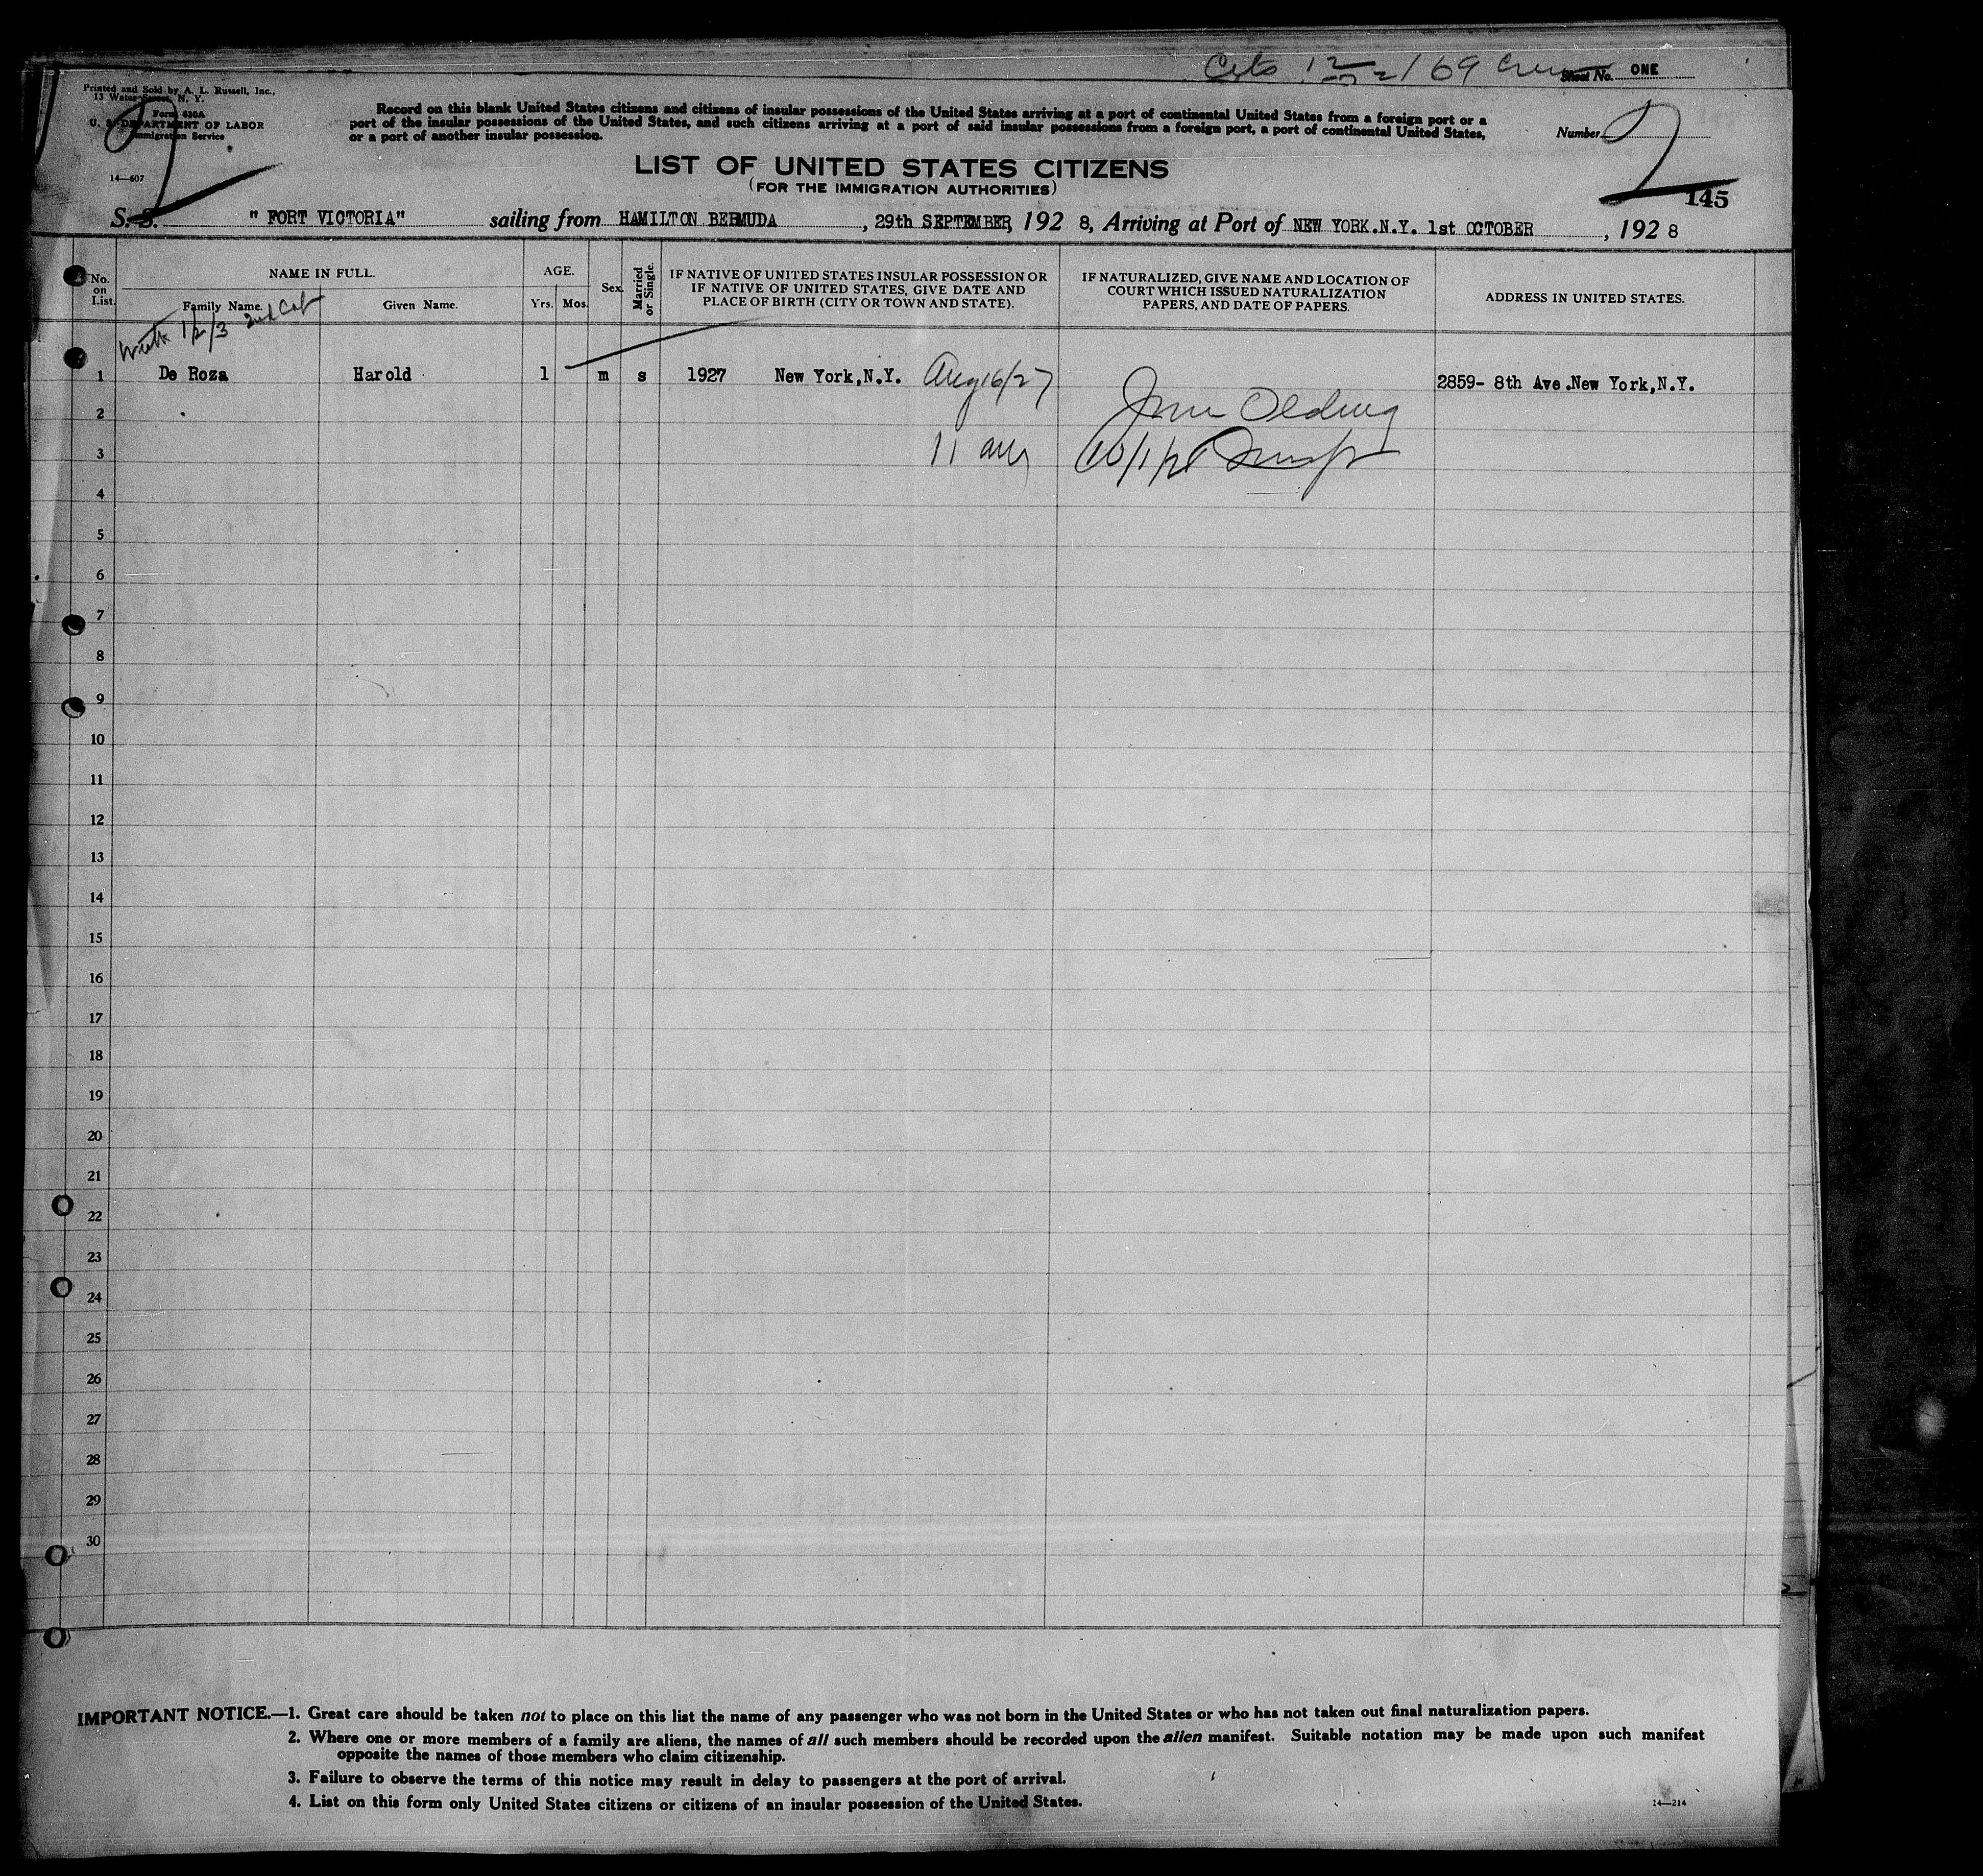 169 Crew
Sheet No. ONE
Printed and Sold by A. L. Russell, Inc.,
13 Water Street, N. Y.
Form 630A
U. S. DEPARTMENT OF LABOR
Immigration Service
14—607
Record on this blank United States citizens and citizens of insular possessions of the United States arriving at a port of continental United States from a foreign port or a
port of the insular possessions of the United States, and such citizens arriving at a port of said insular possessions from a foreign port, a port of continental United States,
or a port of another insular possession.
Number
2
2
LIST OF UNITED STATES CITIZENS
(FOR THE IMMIGRATION AUTHORITIES)
145
S. S. "FORT VICTORIA" sailing from HAMILTON BERMUDA, 29th SEPTEMBER, 1928, Arriving at Port of NEW YORK.N.Y. 1st OCTOBER, 1928
No. on List.
NAME IN FULL.
Family Name.
Given Name.
AGE.
Yrs.
Mos.
Sex.
Married or Single.
IF NATIVE OF UNITED STATES INSULAR POSSESSION OR
IF NATIVE OF UNITED STATES, GIVE DATE AND
PLACE OF BIRTH (CITY OR TOWN AND STATE).
IF NATURALIZED, GIVE NAME AND LOCATION OF
COURT WHICH ISSUED NATURALIZATION
PAPERS, AND DATE OF PAPERS.
ADDRESS IN UNITED STATES.
with 1/2/3 2nd Cab
1 De Roza Harold 1 m s 1927 New York,N.Y. Aug 16/27 2859- 8th Ave.New York,N.Y.
2
3 11 am 10/1/28
4
5
6
7
8
9
10
11
12
13
14
15
16
17
18
19
20
21
22
23
24
25
26
27
28
29
30
IMPORTANT NOTICE.—1. Great care should be taken not to place on this list the name of any passenger who was not born in the United States or who has not taken out final naturalization papers.
2. Where one or more members of a family are aliens, the names of all such members should be recorded upon the alien manifest. Suitable notation may be made upon such manifest
opposite the names of those members who claim citizenship.
3. Failure to observe the terms of this notice may result in delay to passengers at the port of arrival.
4. List on this form only United States citizens or citizens of an insular possession of the United States.
14—214